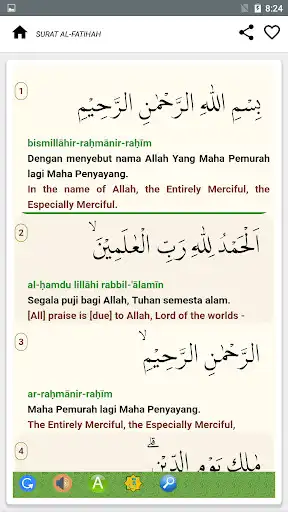 8:24
SURAT AL-FATIHAH
1
بِسْمِ اللّٰهِ الرَّحْمٰنِ الرَّحِيْمِ
bismillāhir-raḥmānir-raḥīm
Dengan menyebut nama Allah Yang Maha Pemurah
lagi Maha Penyayang.
In the name of Allah, the Entirely Merciful, the
Especially Merciful.
2
اَلْحَمْدُ لِلّٰهِ رَبِّ الْعٰلَمِيْنَۙ
al-ḥamdu lillāhi rabbil-'ālamīn
Segala puji bagi Allah, Tuhan semesta alam.
[All] praise is [due] to Allah, Lord of the worlds -
3
الرَّحْمٰنِ الرَّحِيْمِۙ
ar-raḥmānir-raḥīm
Maha Pemurah lagi Maha Penyayang.
The Entirely Merciful, the Especially Merciful,
4
مٰلِكِ يَوْمِ الدِّيْنِۗ
G
A